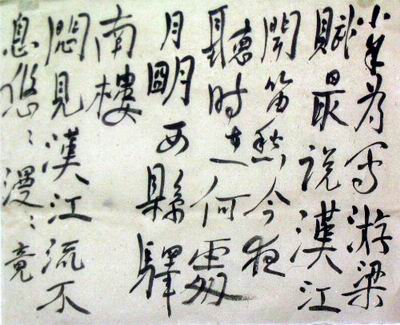 小年為寫游梁
賦最說漢江
聞笛愁今夜
聽時在何處
月明西縣驛
南樓
悶見漢江流不
息悠〻漫〻竟